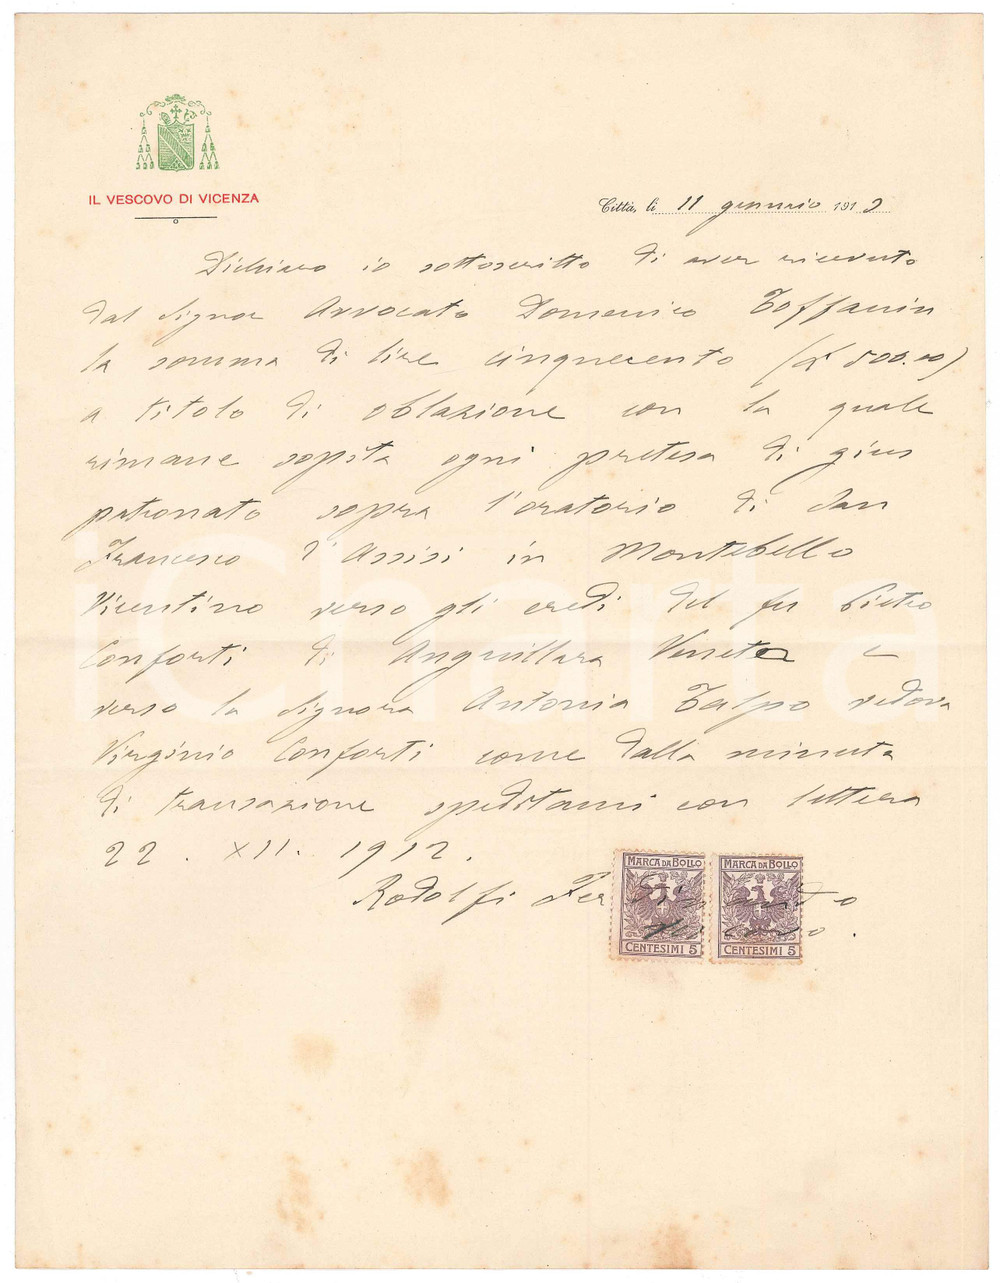 IL VESCOVO DI VICENZA
Città, li 11 gennaio 1913
Dichiaro io sottoscritto di aver ricevuto
dal Signor Avvocato Domenico Toffanin
la somma di lire cinquecento (£ 500.00)
a titolo di oblazione con la quale
rimane sopita ogni pretesa di gius
patronato sopra l'oratorio di San
Francesco d'Assisi in Montebello
Vicentino verso gli eredi del fu Pietro
Conforti di Anguillara Veneta e
verso la Signora Antonia Talpo vedova
Virginio Conforti come dalla minuta
di transazione speditami con lettera
22. XII. 1912.
Rodolfi Ferdinando
Vescovo.
MARCA DA BOLLO
CENTESIMI 5
MARCA DA BOLLO
CENTESIMI 5
iCharta